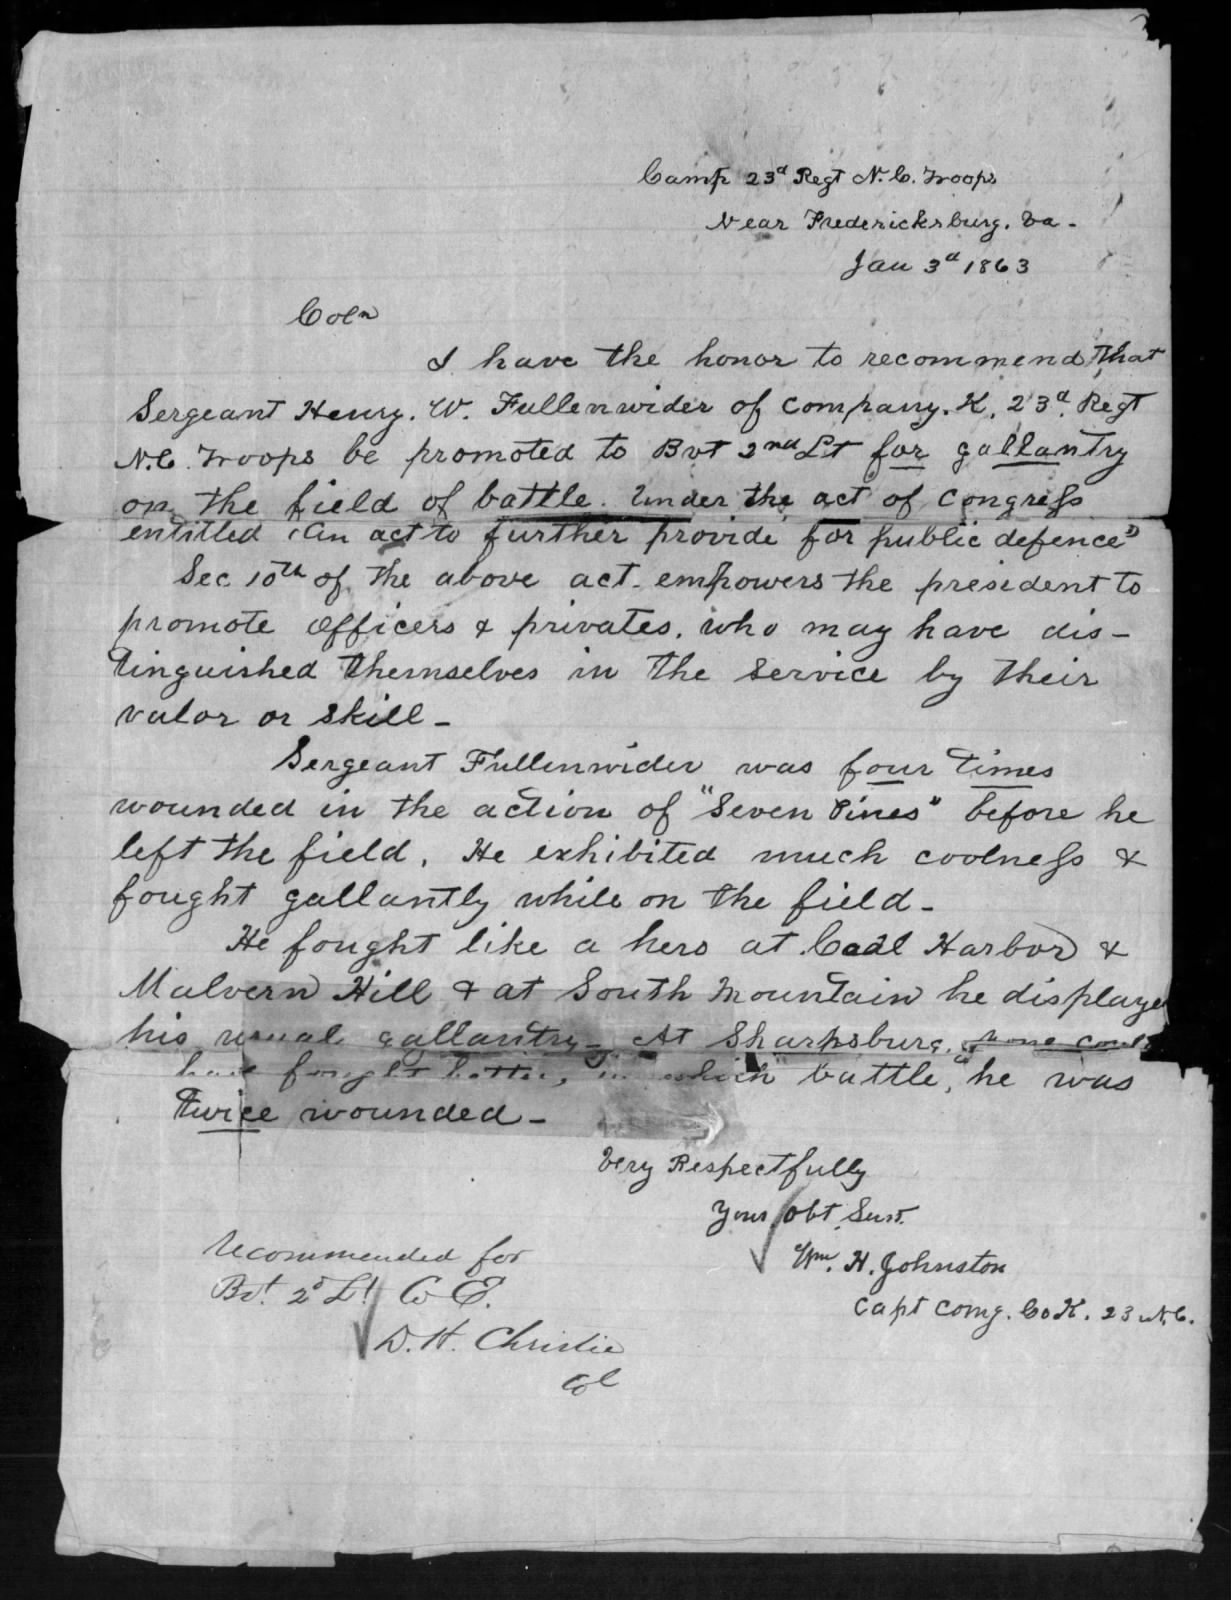 Camp 23d Regt N.C. Troops
Near Fredericksburg. Va -
Jan 3d 1863
Coln
I have the honor to recommend that
Sergeant Henry. W. Fullenwider of Company. K, 23d Regt
N.C. Troops be promoted to Bvt 2nd Lt for gallantry
on the field of battle. Under the act of Congress
entitled "An act to further provide for public defence"
Sec 10th of the above act. empowers the president to
promote officers & privates. who may have dis-
tinguished themselves in the service by their
valor or skill -
Sergeant Fullenwider was four times
wounded in the action of "Seven Pines" before he
left the field. He exhibited much coolness &
fought gallantly while on the field -
He fought like a hero at Coal Harbor &
Malvern Hill & at South Mountain he displaye
his usual gallantry - At Sharpsburg, none could
have fought better, in which battle, he was
twice wounded -
Very Respectfully
Your Obt Servt.
Wm. H. Johnston
Capt Comg. Co K. 23 N.C.
Recommended for
Bvt. 2d Lt Co E.
D. H. Christie
Col